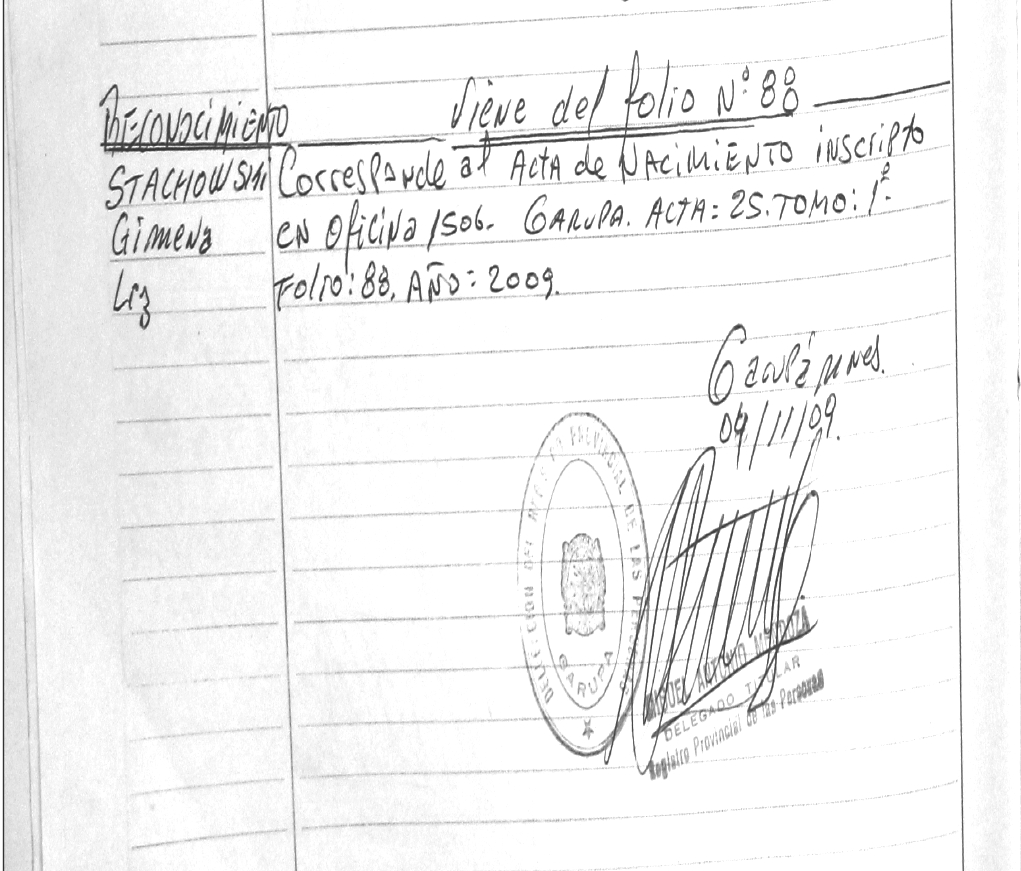 RECONOCIMIENTO
Viene del folio Nº 88
STACHOWSKI
Gimena
Liz
Corresponde al Acta de Nacimiento inscripto
en Oficina 1506- GARUPA. ACTA: 25. TOMO: 1º.
Folio: 88, AÑO: 2009.
Garupá, Mnes.
04/11/09.
DELEGACION DEL REGISTRO PROVINCIAL DE LAS PERSONAS
GARUPA
MIGUEL ANTONIO MENDOZA
DELEGADO TITULAR
Registro Provincial de las Personas